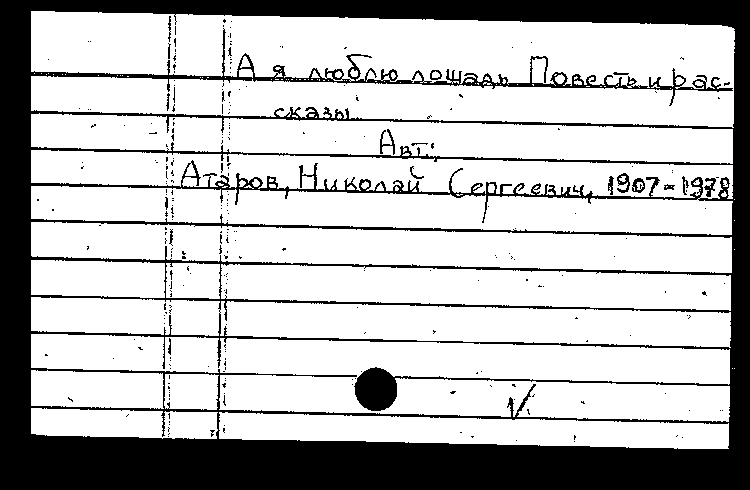 А я люблю лошадь Повесть и рас-
сказы
Авт.:
Атаров, Николай Сергеевич, 1907-1978